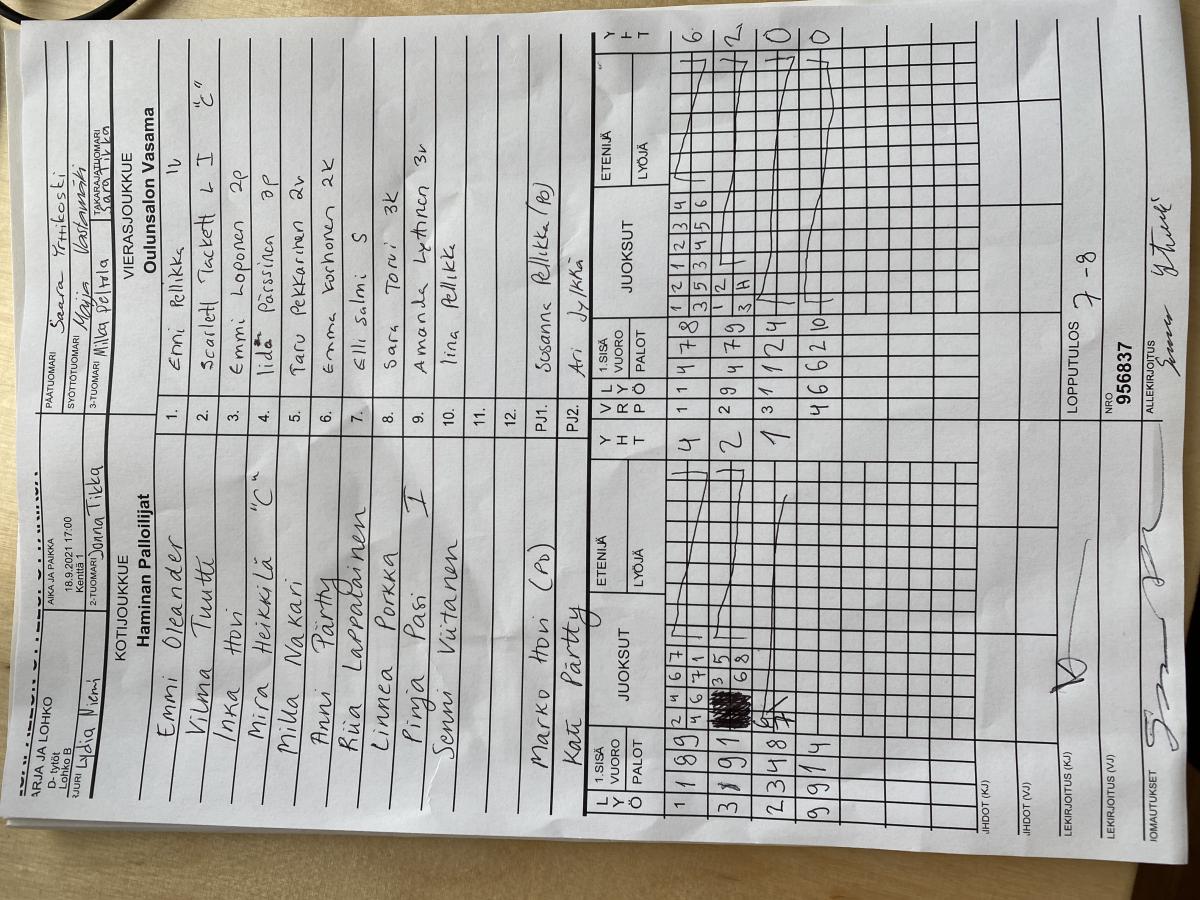 ARJA JA LOHKO AIKA JA PAIKKA PÄÄTUOMARI Saara Yrttikoski
D- tytöt 18.9.2021 17:00 SYÖTTÖTUOMARI Maija Vastamäki
Lohko B Kenttä 1
Lydia Niemi 2-TUOMARI Jonna Tikka 3-TUOMARI Milka Peltola TAKARAJATUOMARI Sara Tikka
KOTIJOUKKUE VIERASJOUKKUE
Haminan Palloilijat Oulunsalon Vasama
Emmi Oleander 1. Enni Pellikka 1v
Vilma Tuutti 2. Scarlett Tackett L I "C"
Inka Hovi 3. Emmi Loponen 2p
Mira Heikkilä "C" 4. Iida Pärssinen 3p
Milla Nakari 5. Taru Pekkarinen 2v
Anni Pärtty 6. Emma Korhonen 2k
Riia Lappalainen 7. Elli Salmi S
Linnea Porkka 8. Sara Torvi 3k
Pinja Päsi I 9. Amanda Lyttinen 3v
Senni Viitanen 10. Iina Pellikka
11.
12.
Marko Hovi (PD) PJ1. Susanna Pellikka (PD)
Katu Pärtty PJ2. Ari Jylkkä
L Y Ö 1.SISÄ VUORO PALOT JUOKSUT ETENIJÄ LYÖJÄ Y H T V R P L Y Ö 1.SISÄ VUORO PALOT JUOKSUT ETENIJÄ LYÖJÄ Y H T
1 1 8 9 2 4 6 7 4 1 1 4 7 8 1 2 1 2 3 4 6
4 6 7 1 3 5 3 4 5 6
3 9 1 3 5 2 2 9 4 7 9 1 2 2
6 8 3 4
2 3 4 8 1 3 1 1 2 4 0
9 9 1 4 4 6 6 2 10 0
JHDOT (KJ)
JHDOT (VJ) LOPPUTULOS 7-8
LEKIRJOITUS (KJ)
LEKIRJOITUS (VJ) NRO 956837
IOMAUTUKSET ALLEKIRJOITUS